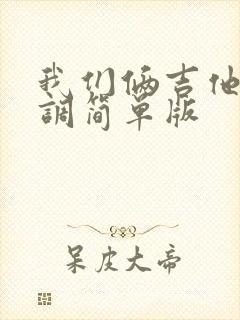 我们俩吉他
調简单版
呆皮大帝